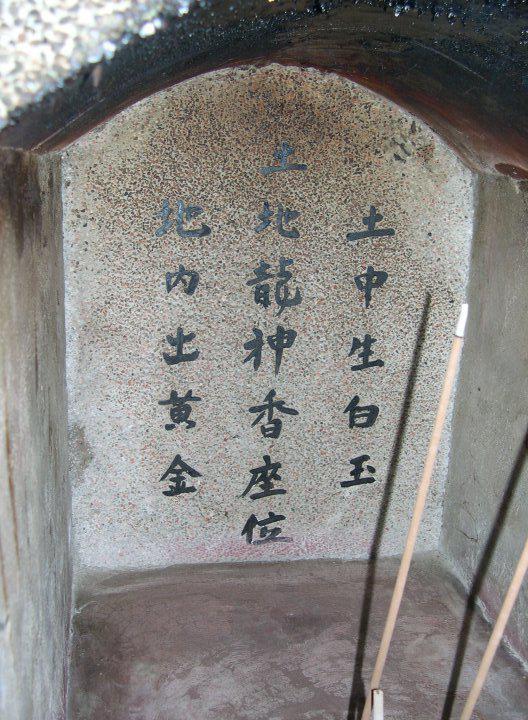 土中生白玉
土地龍神香座位
地内出黄金